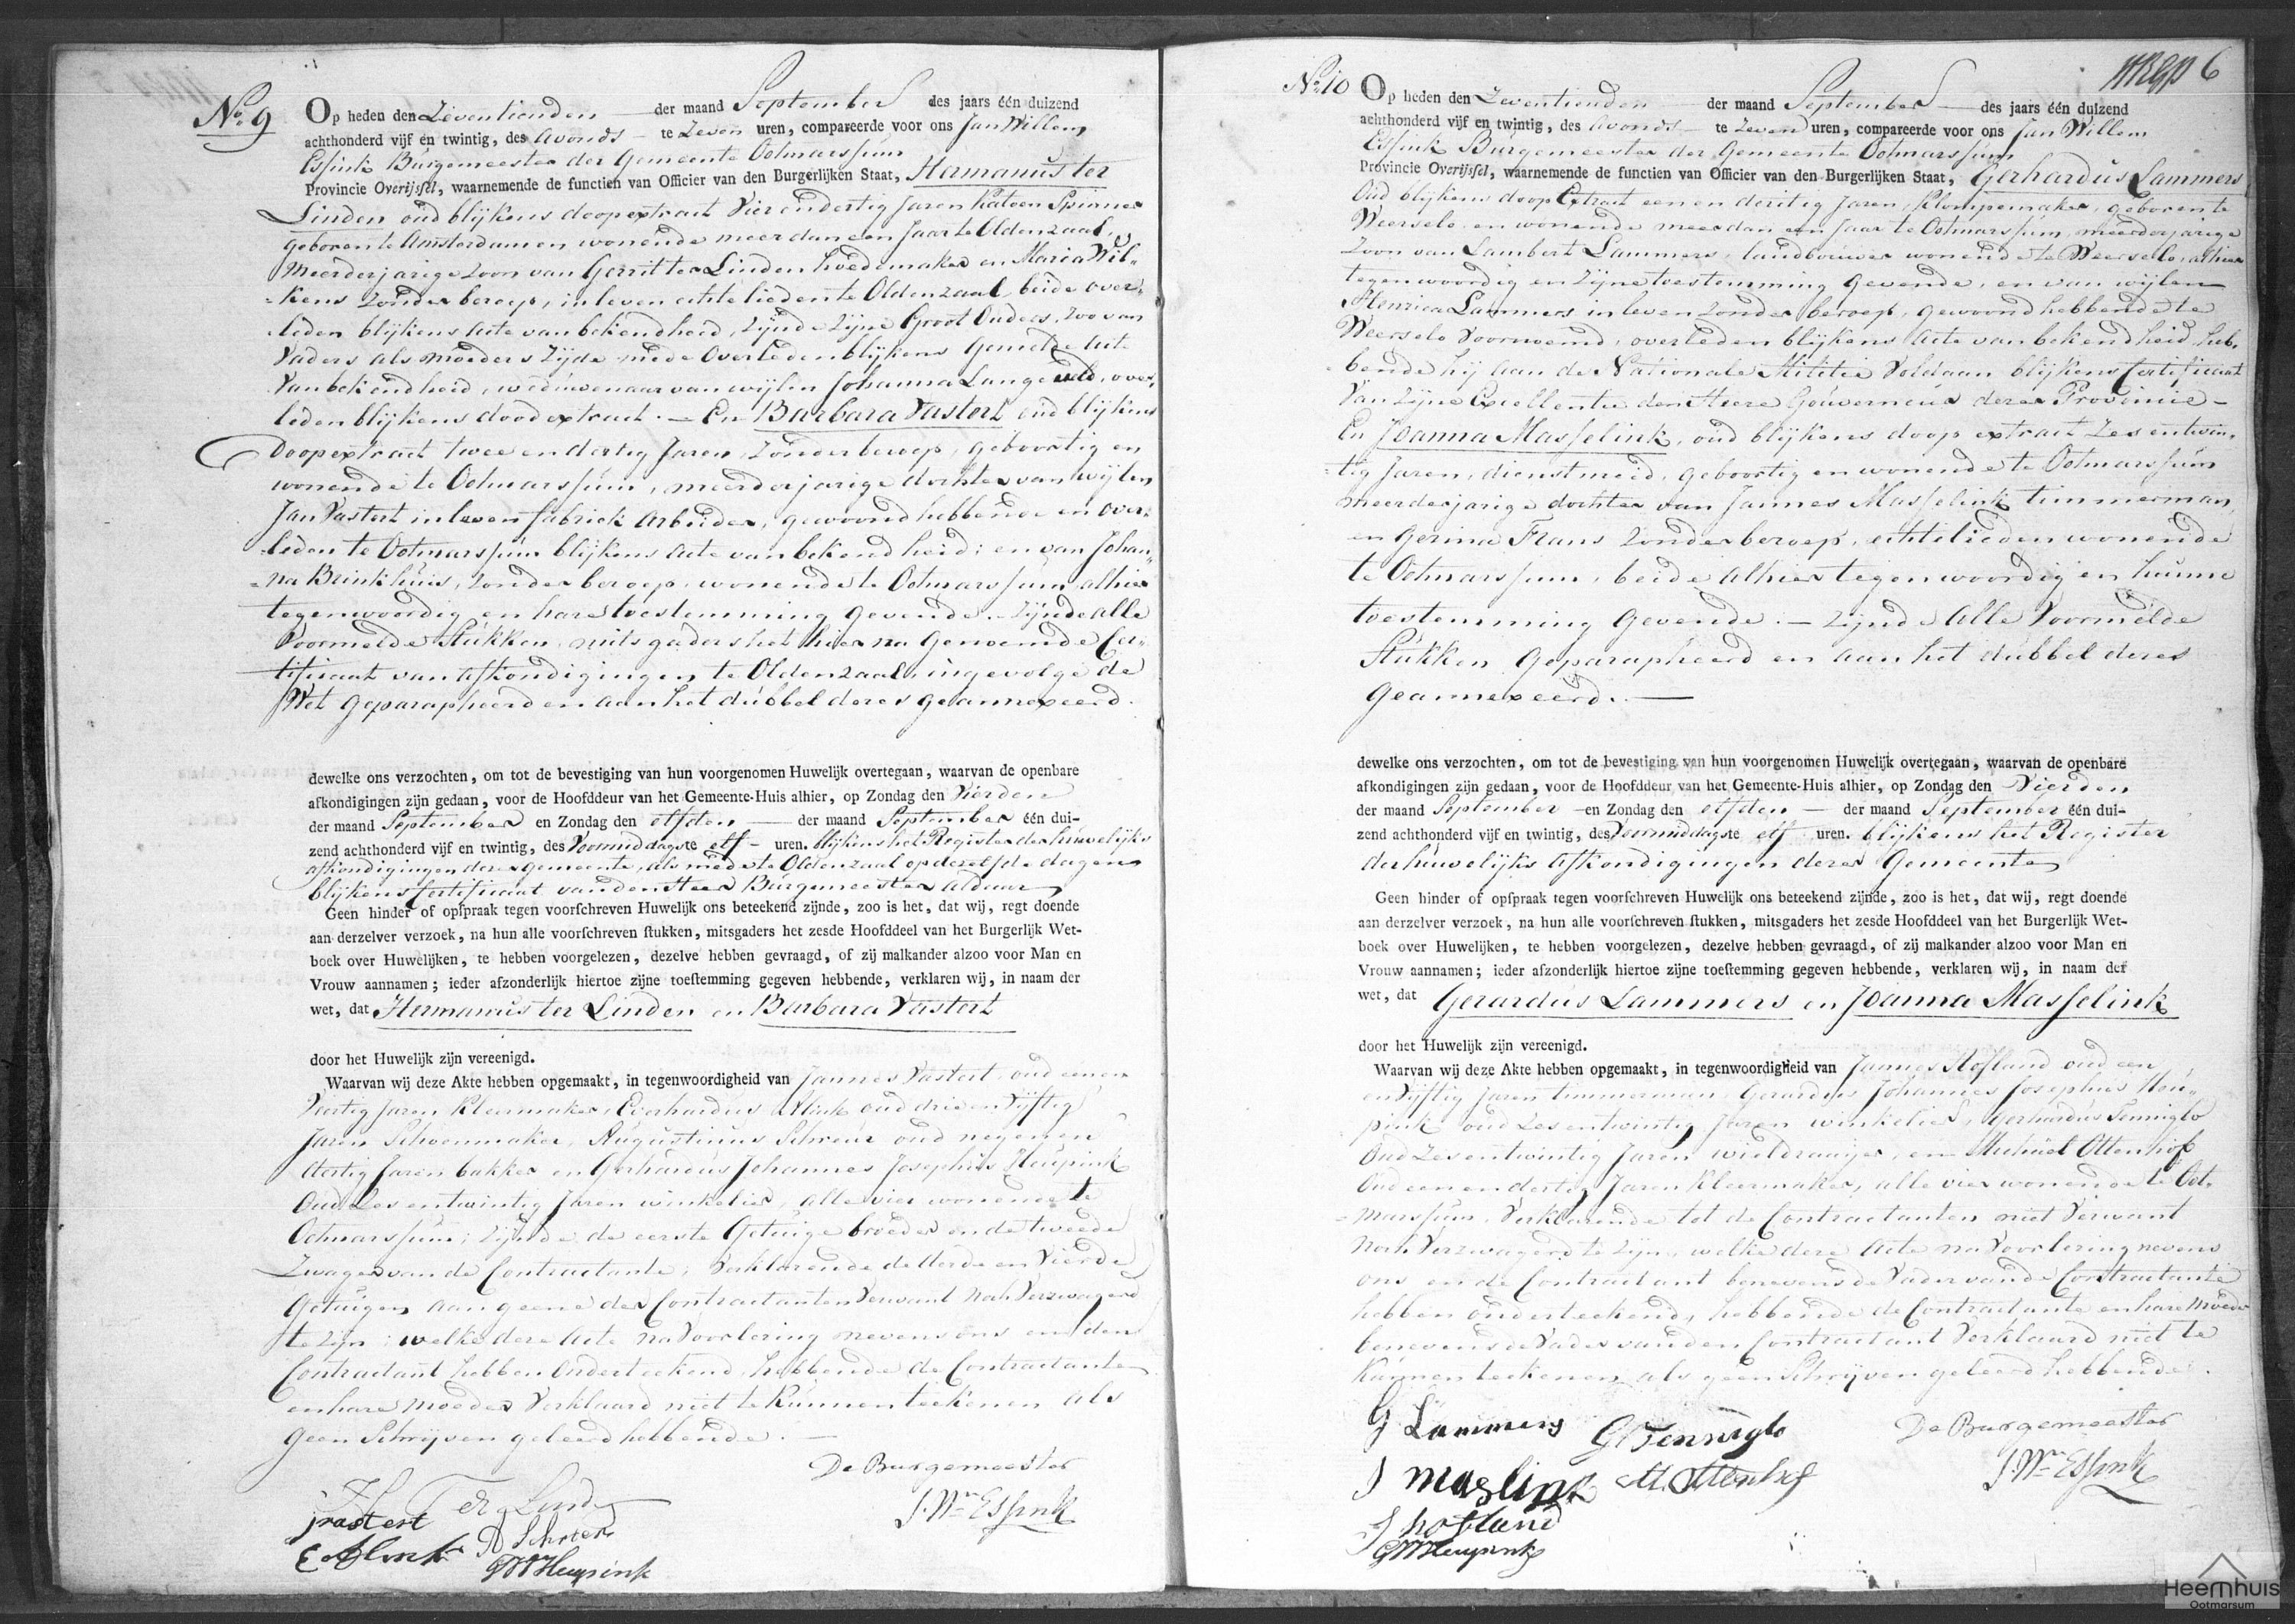 No. 9
Op heden den Zeventienden der maand September des jaars één duizend
achthonderd vijf en twintig, des avonds te Zeven uren, compareerde voor ons Jan Willem
Essink Burgemeester der Gemeente Ootmarssum
Provincie Overijssel, waarnemende de functien van Officier van den Burgerlijken Staat, Hermanus ter
Linden oud blijkens doopextract Vier en dertig Jaren Katoen Spinner
geboren te Amsterdam en wonende meer dan een Jaar te Oldenzaal,
Meerderjarige Zoon van Gerrit ter Linden hoedemaker en Maria Wil-
=kens zonder beroep, in leven echtelieden te Oldenzaal, beide over-
=leden blijkens acte van bekendheid, Zijnde Zijne Groot Ouders, Zoo van
Vaders als moeders Zijde mede Overleden blijkens Gemelde acte
Van bekendheid, weduwenaar van wijlen Johanna Lange, over-
leden blijkens doodextract. — En Barbara Vastert oud blijkens
Doopextract twee en dertig Jaren, Zonder beroep, geboortig en
wonende te Ootmarssum, meerderjarige dochter van wijlen
Jan Vastert in leven fabriek Arbeider, gewoond hebbende en over-
=leden te Ootmarssum blijkens acte van bekendheid; en van Johan-
=na Brinkhuis, Zonder beroep, wonende te Ootmarssum, alhier
tegenwoordig en hare toestemming gevende. Zijnde alle
Voormelde Stukken, mitsgaders het hier na genoemde Cer-
tificaat van afkondigingen te Oldenzaal, ingevolge de
Wet geparapheerd en aan het dubbel deres geannexeerd.
dewelke ons verzochten, om tot de bevestiging van hun voorgenomen Huwelijk overtegaan, waarvan de openbare
afkondigingen zijn gedaan, voor de Hoofddeur van het Gemeente-Huis alhier, op Zondag den Vierden
der maand September en Zondag den elfden der maand September één dui-
zend achthonderd vijf en twintig, des Voormiddags te elf uren. blijkens het Register der huwelijks
afkondigingen deres gemeente, als mede te Oldenzaal op dezelfde dagen
blijkens Certificaat van den Heer Burgemeester aldaar
Geen hinder of opspraak tegen voorschreven Huwelijk ons beteekend zijnde, zoo is het, dat wij, regt doende
aan derzelver verzoek, na hun alle voorschreven stukken, mitsgaders het zesde Hoofddeel van het Burgerlijk Wet-
boek over Huwelijken, te hebben voorgelezen, dezelve hebben gevraagd, of zij malkander alzoo voor Man en
Vrouw aannamen; ieder afzonderlijk hiertoe zijne toestemming gegeven hebbende, verklaren wij, in naam der
wet, dat Hermannus ter Linden en Barbara Vastert
door het Huwelijk zijn vereenigd.
Waarvan wij deze Akte hebben opgemaakt, in tegenwoordigheid van Jannes Vastert, oud een en
Veertig Jaren Kleermaker, Everhardus Alink oud drie en Vijftig
Jaren Schoenmaker, Augustinus Schreur oud negen en
dertig Jaren bakker en Gerhardus Johannes Josephus Heupink
Oud Zes en twintig Jaren winkelier, alle vier wonende te
Ootmarssum; Zijnde de eerste Getuige broeder en de tweede
Zwager van de Contractante, Verklarende de derde en Vierde
Getuigen aan geene der Contractanten Verwant noch Verzwagerd
te Zijn; welke deze Acte na Voorlezing nevens ons en den
Contractant hebben Onderteekend, hebbende de Contractante
en hare moeder Verklaard niet te Kunnen teekenen als
geen Schrijven geleerd hebbende. —
De Burgemeester
H Ter Linde
J. Wm Essink
j vastert
A Schreur
E Alink
GJJ Heupink
No. 10
6
Op heden den Zeventienden der maand September des jaars één duizend
achthonderd vijf en twintig, des avonds te Zeven uren, compareerde voor ons Jan Willem
Essink Burgemeester der Gemeente Ootmarssum
Provincie Overijssel, waarnemende de functien van Officier van den Burgerlijken Staat, Gerhardus Lammers
Oud blijkens doop Extract een en dertig Jaren, Klompemaker, geboren te
Weerselo en wonende meer dan een Jaar te Ootmarssum, meerderjarige
Zoon van Lambert Lammers, landbouwer wonende te Weerselo, alhier
tegenwoordig en Zijne toestemming Gevende, en van wijlen
Henrica Lammers in leven Zonder beroep, gewoond hebbende te
Weerselo Voornoemd, overleden blijkens Acte van bekendheid, heb-
bende hij aan de Nationale Militie Voldaan blijkens Certificaat
Van Zijne Excellentie den Heere Gouverneur dezer Provincie —
En Joanna Masselink, oud blijkens doop extract Zes en twin-
=tig Jaren, dienstmeid, geboortig en wonende te Ootmarssum
meerderjarige dochter van Jannes Masselink timmerman,
en Gerina Frans Zonder beroep, echtelieden wonende
te Ootmarssum, beide alhier tegenwoordig en hunne
toestemming Gevende. — Zijnde Alle Voormelde
Stukken Geparapheerd en aan het dubbel deres
Geannexeerd. —
dewelke ons verzochten, om tot de bevestiging van hun voorgenomen Huwelijk overtegaan, waarvan de openbare
afkondigingen zijn gedaan, voor de Hoofddeur van het Gemeente-Huis alhier, op Zondag den Vierden
der maand September en Zondag den elfden der maand September één dui-
zend achthonderd vijf en twintig, des Voormiddags te elf uren. blijkens het Register
der huwelijks afkondigingen deres Gemeente
Geen hinder of opspraak tegen voorschreven Huwelijk ons beteekend zijnde, zoo is het, dat wij, regt doende
aan derzelver verzoek, na hun alle voorschreven stukken, mitsgaders het zesde Hoofddeel van het Burgerlijk Wet-
boek over Huwelijken, te hebben voorgelezen, dezelve hebben gevraagd, of zij malkander alzoo voor Man en
Vrouw aannamen; ieder afzonderlijk hiertoe zijne toestemming gegeven hebbende, verklaren wij, in naam der
wet, dat Gerardus Lammers en Joanna Masselink
door het Huwelijk zijn vereenigd.
Waarvan wij deze Akte hebben opgemaakt, in tegenwoordigheid van Jannes Hofland oud een
en Vijftig Jaren timmerman, Gerardus Johannes Josephus Heu-
pink oud Zes en twintig Jaren winkelier, Gerhardus Tenniglo
Oud Zes en twintig Jaren wieldraaijer, en Michiel Ottenhof
Oud een en dertig Jaren Kleermaker, alle vier wonende te Oot-
=marssum, Verklarende tot de Contractanten niet Verwant
noch Verzwagerd te Zijn, welke deze Acte na Voorlezing nevens
ons en de Contractant benevens de Vader van de Contractante
hebben onderteekend, hebbende de Contractante en hare Moeder
benevens de Vader van den Contractant Verklaard niet te
Kunnen teekenen als geen Schrijven geleerd hebbende.
G Lammers
G Tenniglo
De Burgemeester
J maslink
M. Ottenhof
J. Wm Essink
J hofland
GJJ Heupink
Heemhuis
Ootmarsum